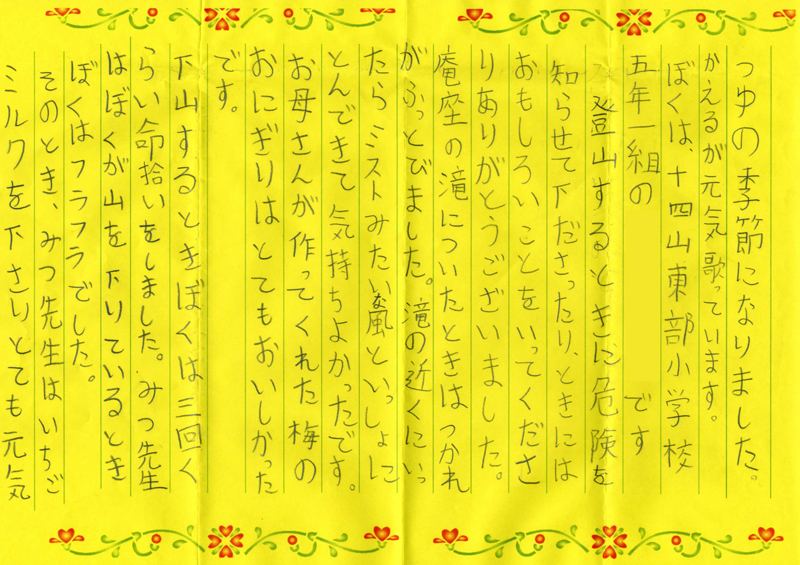 つゆの季節になりました。
かえるが元気歌っています。
ぼくは、十四山東部小学校
五年一組の です
登山するときに危険を
知らせて下ださったり、ときには
おもしろいことをいってくださ
りありがとうございました。
庵座の滝についたときはつかれ
がふっとびました。滝の近くにいっ
たらミストみたいな嵐といっしょに
とんできて気持ちよかったです。
お母さんが作ってくれた梅の
おにぎりはとてもおいしかった
です。
下山するときぼくは三回く
らい命拾いをしました。みつ先生
はぼくが山を下りているとき
ぼくはフラフラでした。
そのとき、みつ先生はいちご
ミルクを下さりとても元気